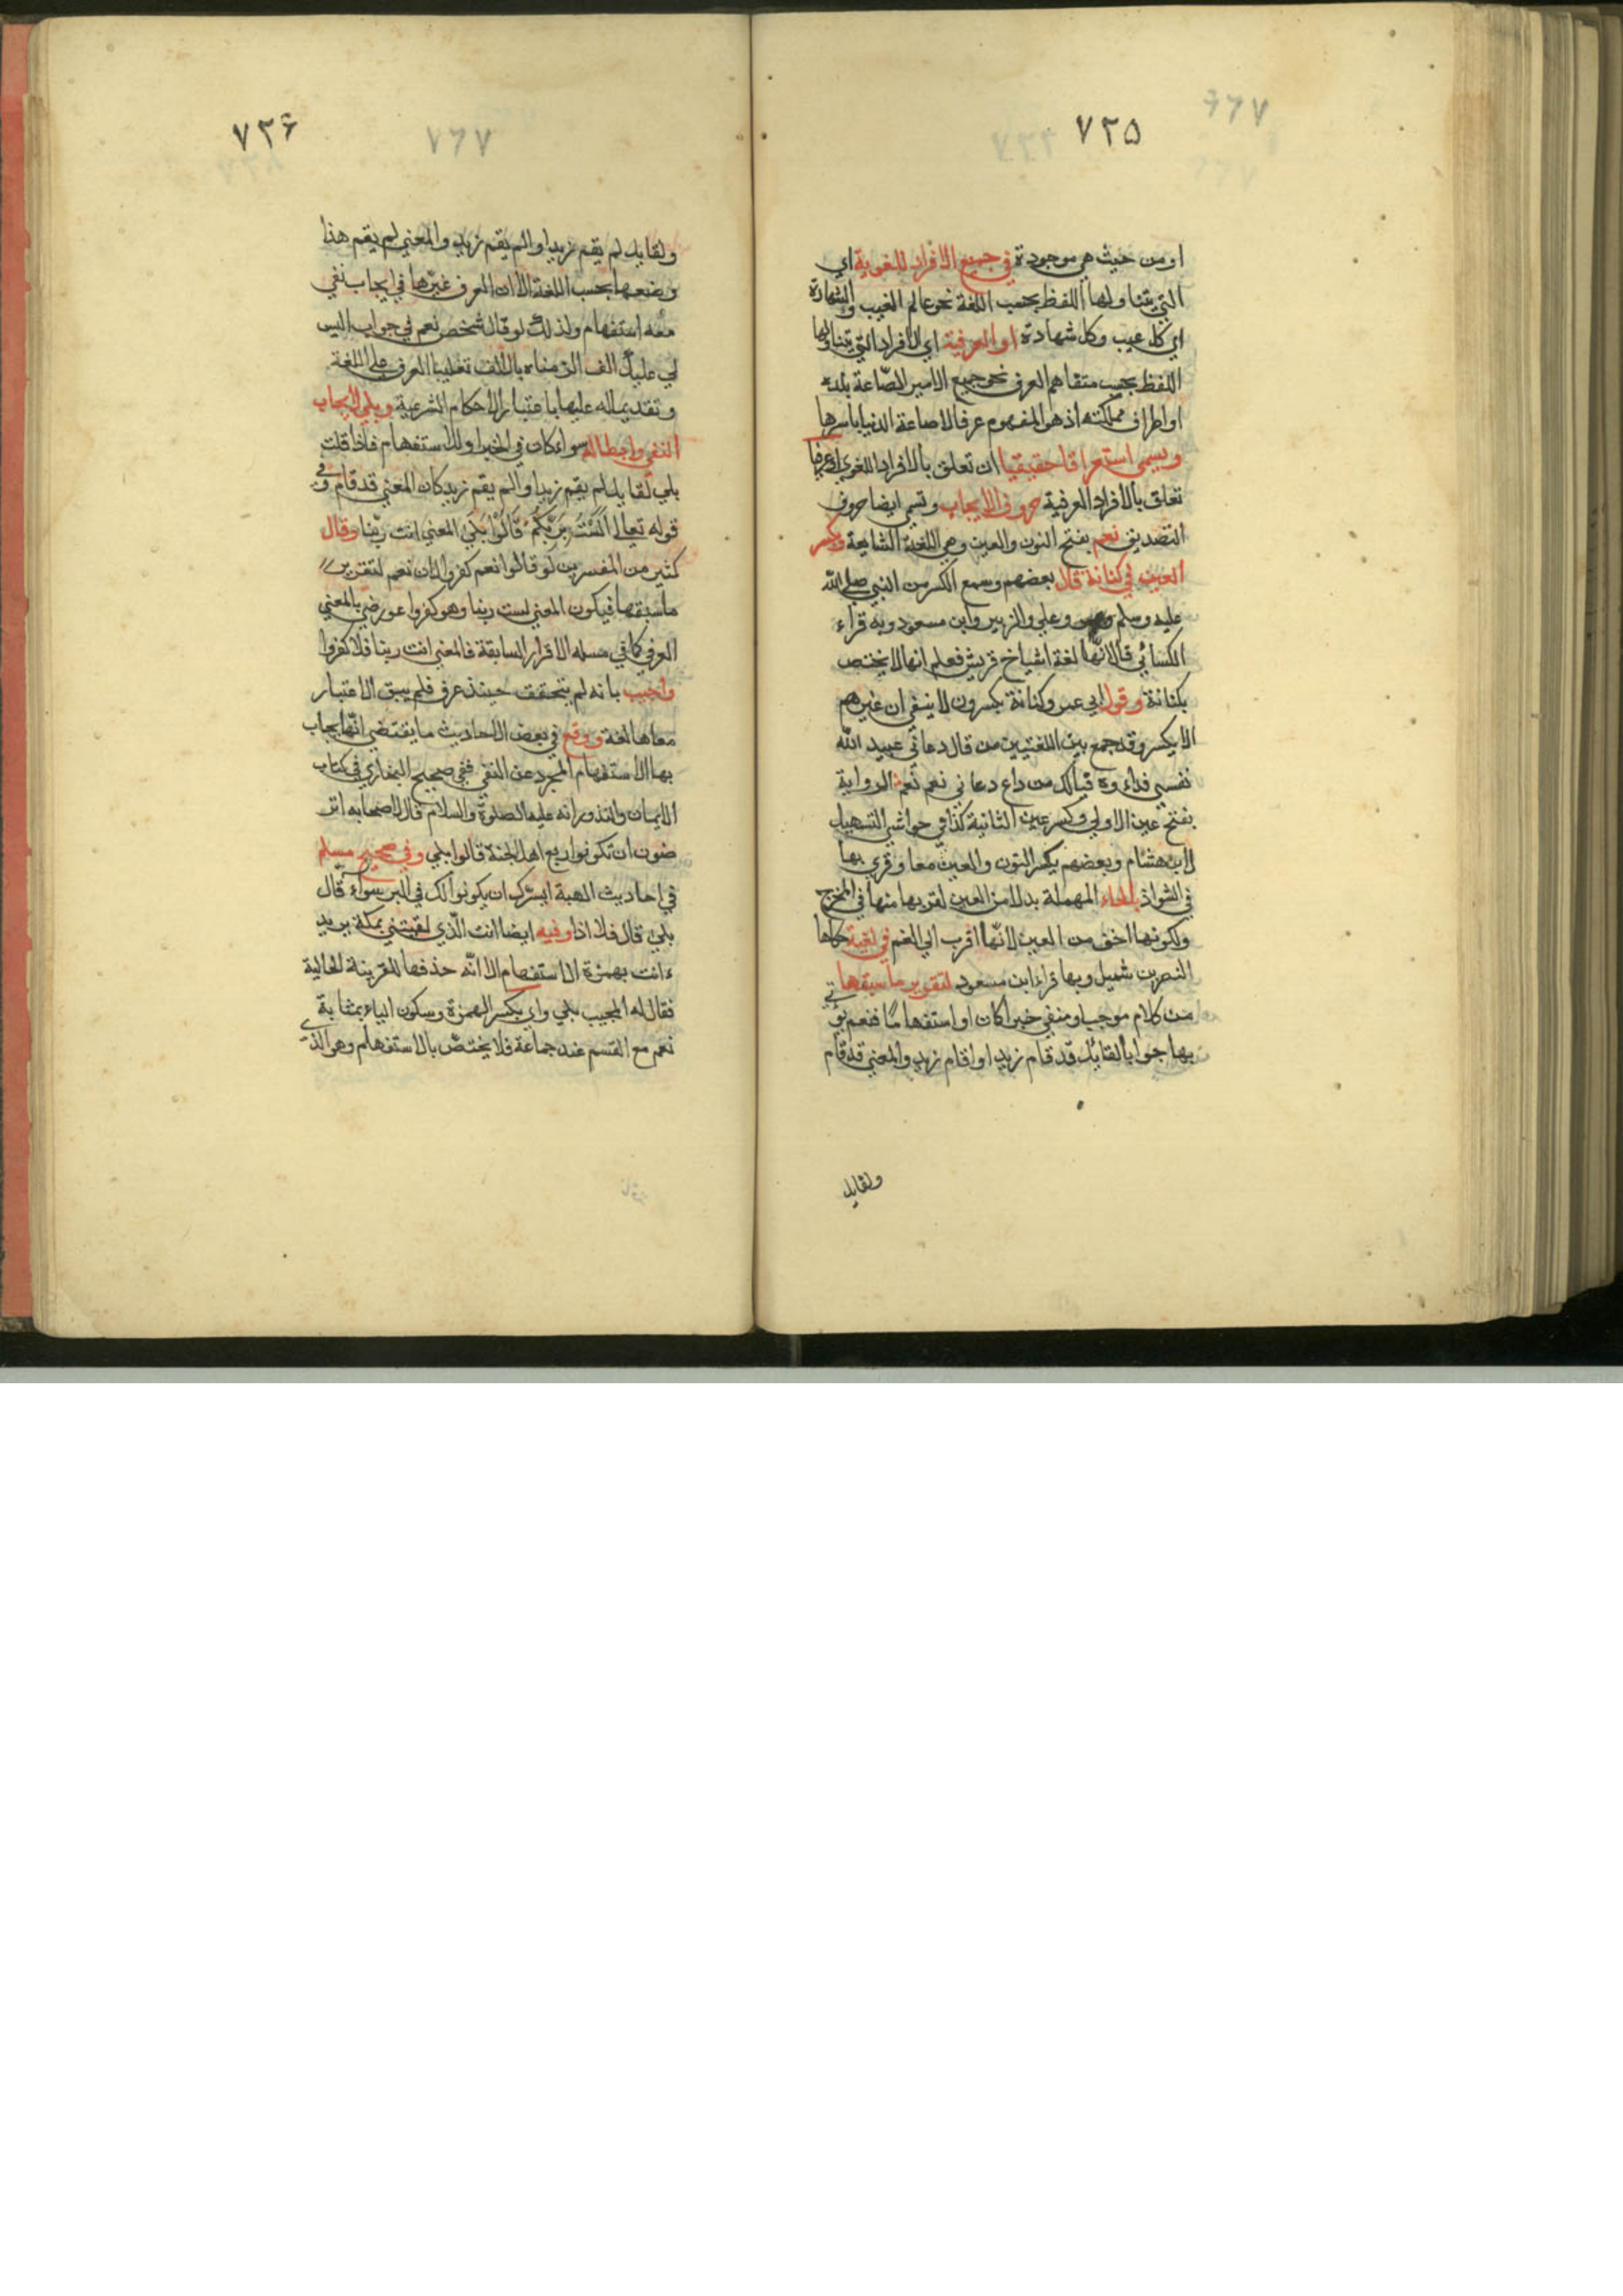 ٧٢٥
او من حيث هي موجودة في جميع الافراد اللغوية اي
التي يتناولها اللفظ بحسب اللغة نحو عالم الغيب والشهادة
اي كل غيب وكل شهادة او العرفية اي الافراد التي يتناولها
اللفظ بحسب متفاهم العرف نحو جميع الامير الصاغة بلده
او اطراف مملكته اذ هو المفهوم عرفا لا صاغة الدنيا باسرها
ويسمى استغراقا حقيقيا ان تعلق بالافراد اللغوي او عرفيا
تعلق بالافراد العرفية حروف الايجاب وتسمى ايضا حروف
التصديق نعم بفتح النون والعين وهي اللغة الشايعة وبكسر
العين في كنانة قال بعضهم وسمع الكسر من النبي صلى الله
عليه وسلم وعلي والزبير وابن مسعود وبه قراء
الكسائي قال لانها لغة اشياخ قريش فعلم انها لا يختص
بكنانة وقول ابي عمر وكنانة يكسرون لا ينبغي ان غيرهم
لا يكسر وقد جمع بين اللغتيين من قال دعاني عبيد الله
نفسي فداءوه فيالك من داع دعاني نعم نعم الرواية
بفتح عين الاولي وكسر عين الثانية كذا في حواشي التسهيل
لابن هشام وبعضهم يكسر النون والعين معا وقري بها
في الشواذ بالحاء المهملة بدلا من العين لقربها منها في المخرج
ولكونها اخف من العين لانها اقرب الي الفم في لغية حكاها
النضر بن شميل وبها قراء ابن مسعود لتقرير ما سبقها
من كلام موجب او منفي خبرا كان او استفهاما فنعم يؤتي
بها جوابا لقايل قد قام زيد او اقام زيد والمعني قد قام
ولقايل
٧٢۶
٧٦٧
ولقايل لم يقم زيد او الم يقم زيد والمعني لم يقم هذا
وضعها بحسب اللغة الا ان العرف غيرها في ايجاب نفي
معه استفهام ولذلك لو قال شخص نعم في جواب اليس
لي عليك الف الزمناه بالالف تغليبا العرف علي اللغة
وتقديما له عليها باعتبار الاحكام الشرعية وبلي لايجاب
النفي وابطاله سواء كان في الخبر او الاستفهام فاذا قلت
بلي لقايل لم يقم زيد او الم يقم زيد كان المعني قد قام وفي
قوله تعالي الست بربكم قالوا بلي المعني انت ربنا وقال
كثير من المفسرين لو قالوا نعم كفروا لان نعم لتقرير
ما سبقها فيكون المعني لست ربنا وهو كفر وا عورض بالمعني
العرفي كما في مسله الاقرار السابقة فالمعني انت ربنا فلا كفروا
واجيب بانه لم يتحقق حينئذ عرف فلم يبق الا اعتبار
معناها لغة ووقع في بعض الاحاديث ما يقتضي انها يجاب
بها الاستفهام المجرد عن النفي ففي صحيح البخاري في كتاب
الايمان والنذور انه عليه الصلوة والسلام قال لاصحابه اتر
ضون ان تكونوا ربع اهل الجنة قالوا بلي وفي صحيح مسلم
في احاديث الهبة ايسرك ان يكونوا لك في البر سواء قال
بلي قال فلا اذا وفيه ايضا انت الذي لقيتني بمكة يريد
ءانت بهمزة الاستفهام الا انه حذفها للقرينة الحالية
فقال له المجيب بلي واي بكسر الهمزة وسكون الياء بمثابة
نعم مع القسم عند جماعة فلا يختص بالاستفهام وهو الذي